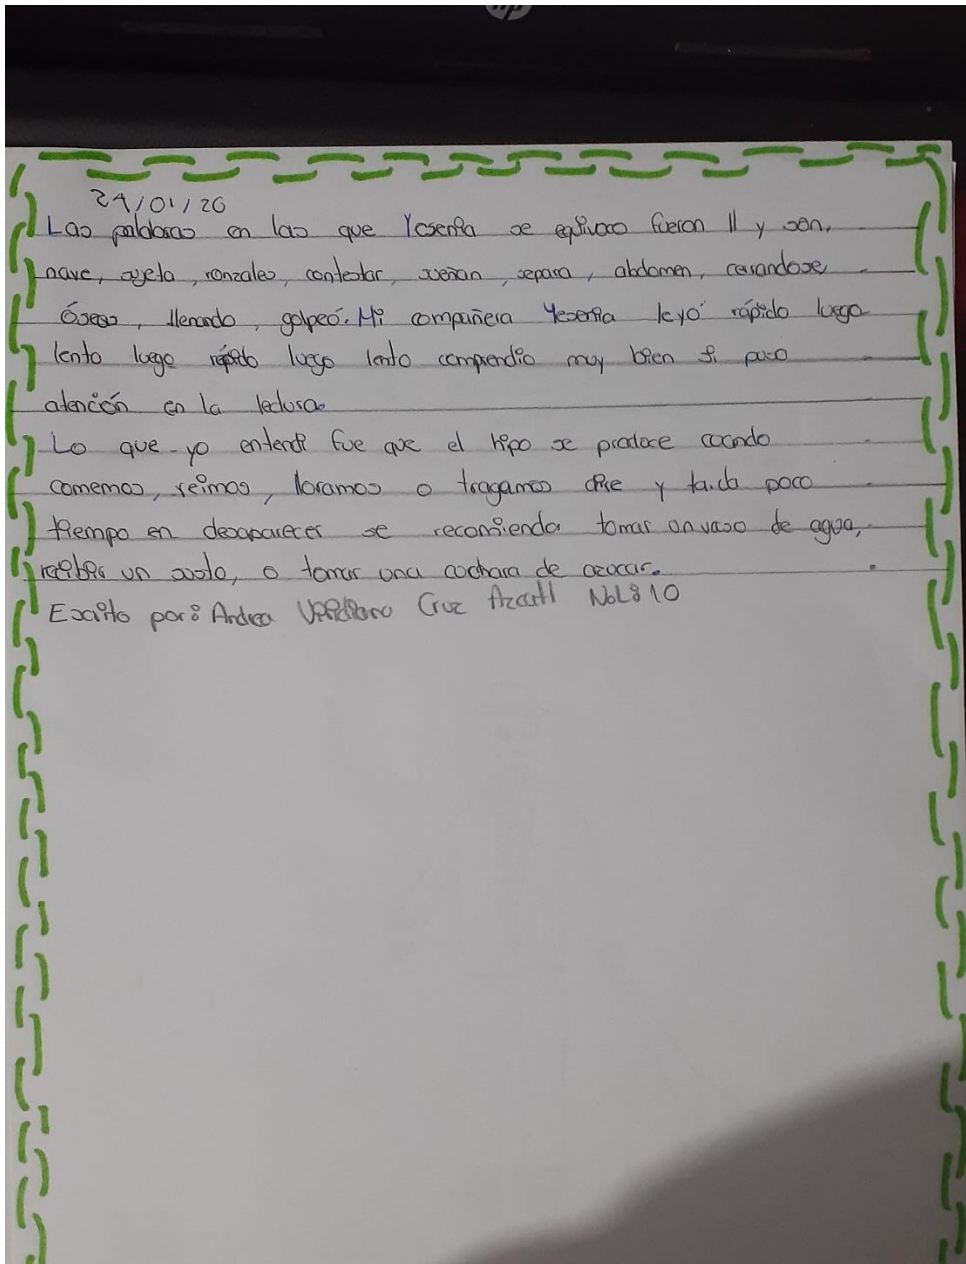 hp
24/01/20
Las palabras en las que Yesenia se equivoco fueron 11 y son,
nave, sujeta, ronzales, contestar, sueñan, separa, abdomen, cerrandose
Óseas, llenando, golpeó. Mi compañera Yesenia leyó rápido luego
lento luego rápido luego lento comprendio muy bien si puso
atención en la lectura.
Lo que yo entendi fue que el hipo se produce cuando
comemos, reimos, lloramos o tragamos aire y tarda poco
tiempo en desaparecer se recomienda tomar un vaso de agua,
recibir un susto, o tomar una cuchara de azucar.
Escrito por: Andrea Cruz Azcatl NoL:10